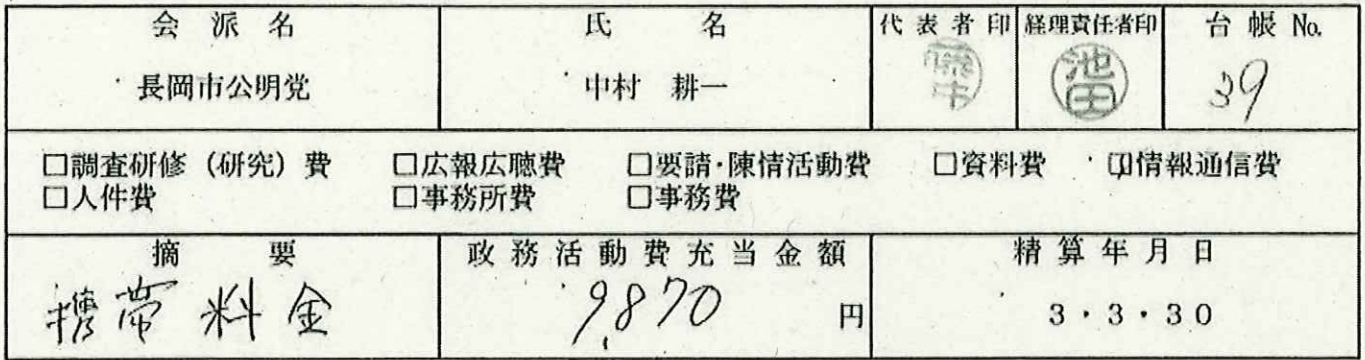 会派名 氏名 代表者印 経理責任者印 台帳No.
長岡市公明党 中村 耕一 池田 39
□調査研修(研究)費 □広報広聴費 □要請・陳情活動費 □資料費 ☑情報通信費
□人件費 □事務所費 □事務費
摘要 政務活動費充当金額 精算年月日
携帯料金 9,870 円 3・3・30